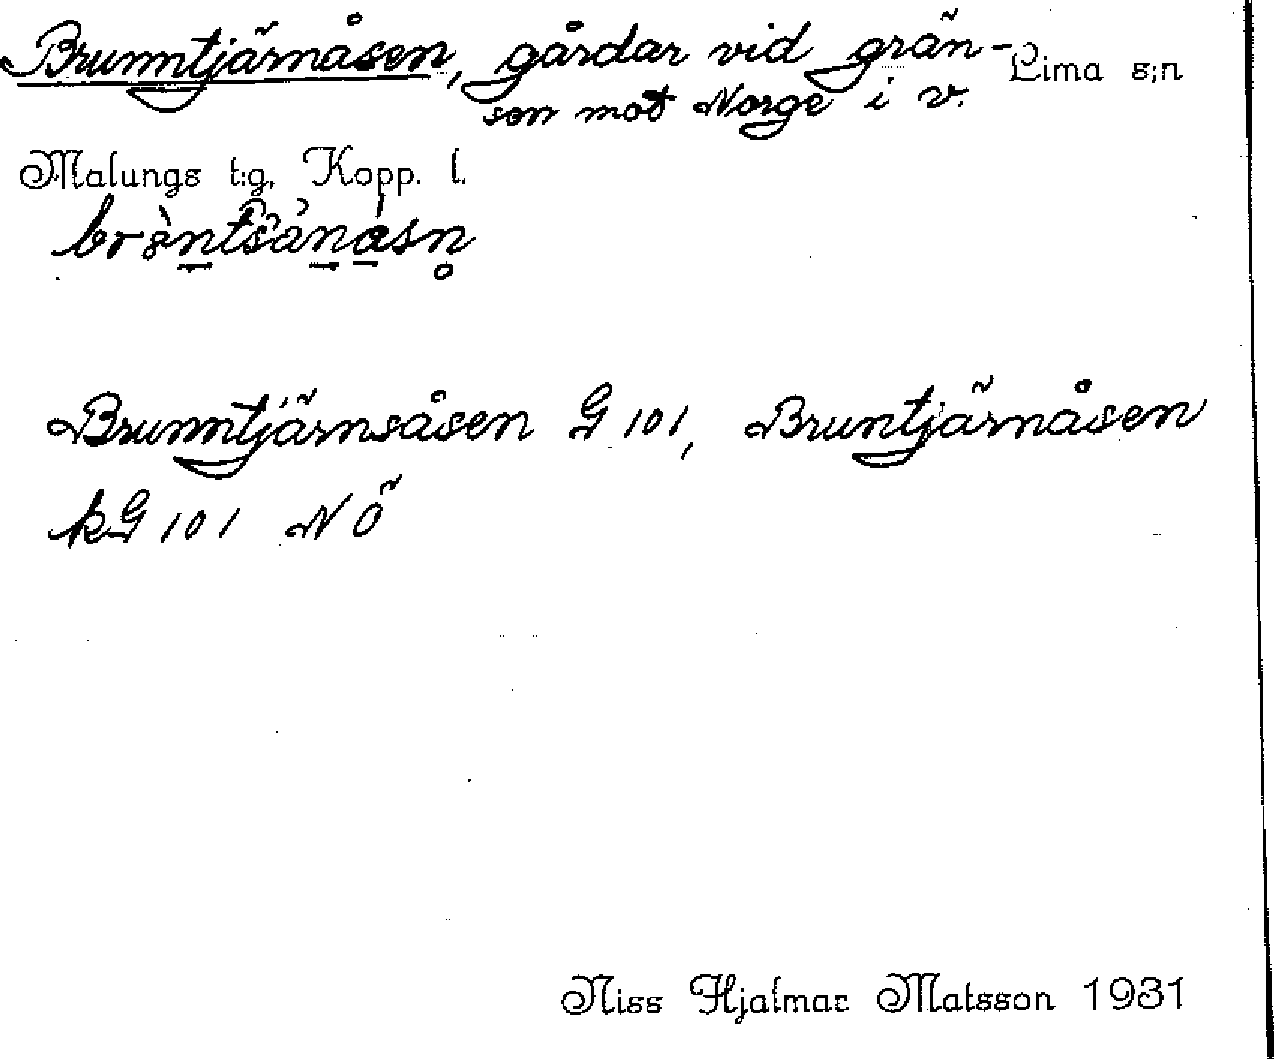 Brunntjärnåsen, gårdar vid grän- Lima s:n
sen mot Norge i v.
Malungs t:g, Kopp. l.
Brunntjärnsåsen G 101, Bruntjärnåsen
kG 101 NÖ
Niss Hjalmar Matsson 1931